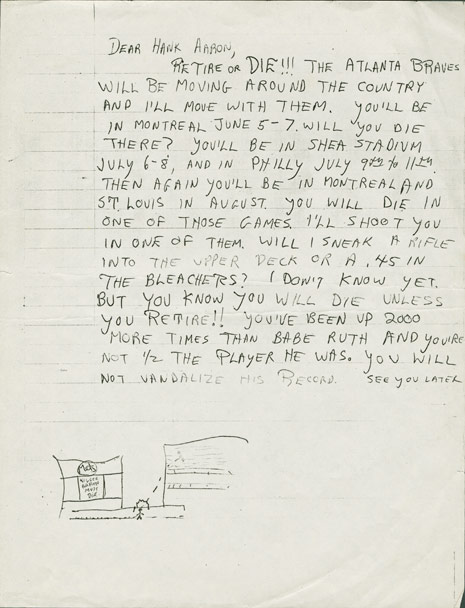 DEAR HANK AARON,
RETIRE OR DIE!!! THE ATLANTA BRAVES
WILL BE MOVING AROUND THE COUNTRY
AND I'LL MOVE WITH THEM. YOU'LL BE
IN MONTREAL JUNE 5-7. WILL YOU DIE
THERE? YOU'LL BE IN SHEA STADIUM
JULY 6-8, AND IN PHILLY JULY 9th to 11th.
THEN AGAIN YOU'LL BE IN MONTREAL AND
ST. LOUIS IN AUGUST. YOU WILL DIE IN
ONE OF THOSE GAMES. I'LL SHOOT YOU
IN ONE OF THEM. WILL I SNEAK A RIFLE
INTO THE UPPER DECK OR A .45 IN
THE BLEACHERS? I DON'T KNOW YET.
BUT YOU KNOW YOU WILL DIE UNLESS
YOU RETIRE!! YOU'VE BEEN UP 2000
MORE TIMES THAN BABE RUTH AND YOU'RE
NOT 1/2 THE PLAYER HE WAS. YOU WILL
NOT VANDALIZE HIS RECORD. SEE YOU LATER